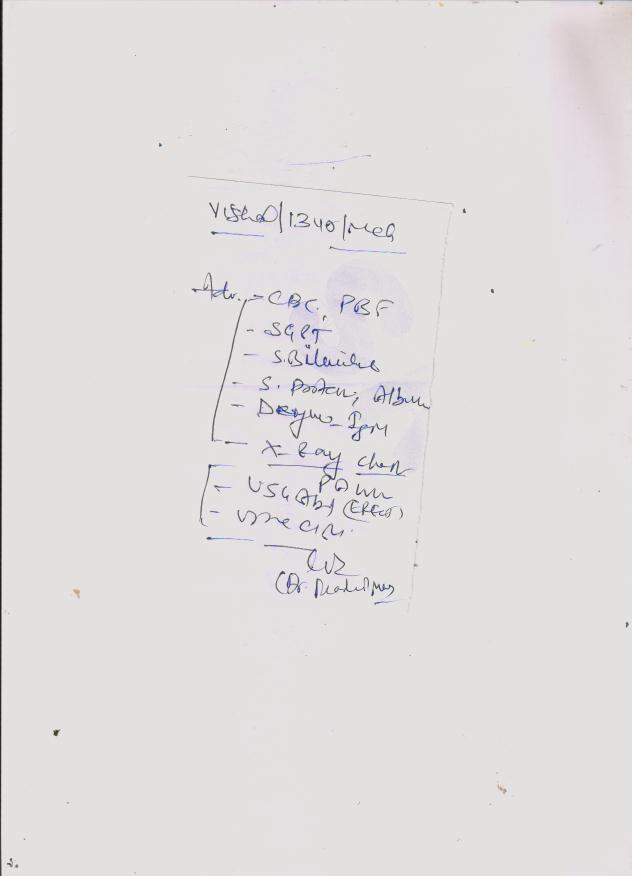 Vishal/1340/Med
Adv. - CBC, PBF
- SGPT
- S. Bilirubin
- S. Protein, Albumin
- Dengue - IgM
- X-Ray Chest
PA view
- USG Abd (ERECT)
- Urine C/M
(Dr.